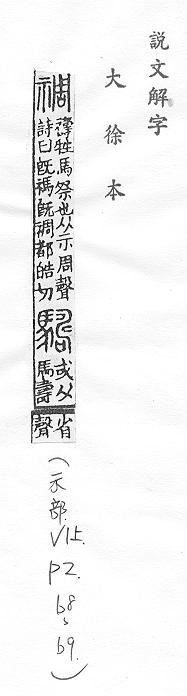 說文解字
大徐本
禂 禱牲馬祭也从示周聲
詩曰既禡既禂都皓切
𩥍 或从
馬壽
省
聲
(示部. V1上. P2. 68、69.)